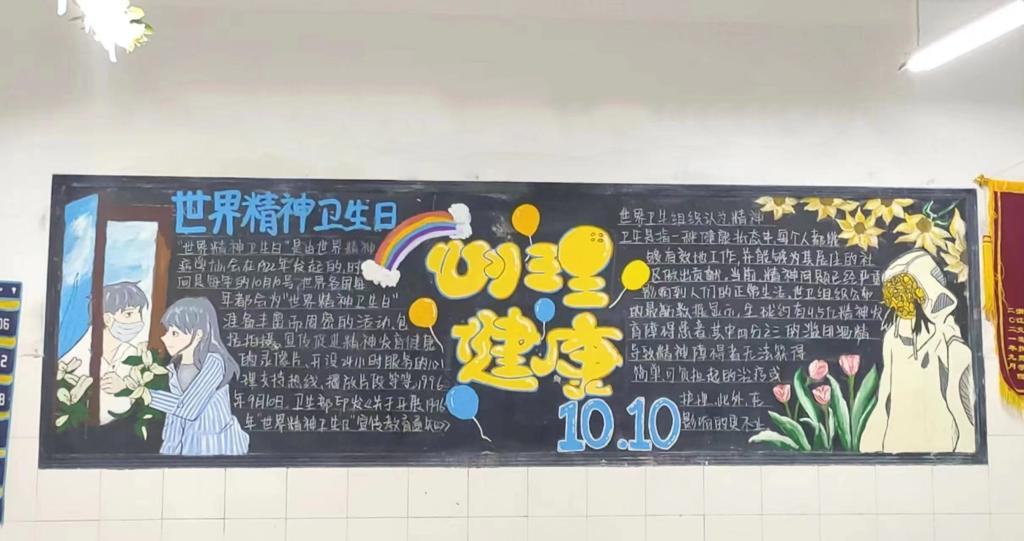 世界精神卫生日
"世界精神卫生日"是由世界精神
病学协会在1992年发起的,时
间是每年的10月10号,世界各国每
年都会为"世界精神卫生日"
准备丰富而周密的活动,包
括拍摄、宣传促进精神发育健康
的录像片、开设24小时服务的心
理支持热线、播放片段等等,1996
年9月10日,卫生部印发《关于开展1996
年"世界精神卫生日"宣传教育
心理
健康
10.10
世界卫生组织认为,精神
卫生是指一种健康状态中每个人都能
够有效地工作,并能够为其居住的社
区做出贡献,当前,精神问题已经严重
影响到人们的正常生活,世卫组织公布
的最新数据显示,全球约有4.5亿精神发
育障碍患者,其中四分之三的
导致精神障碍者无法获得
简单可负担起的治疗或
护理,此外,在
影响的更不止